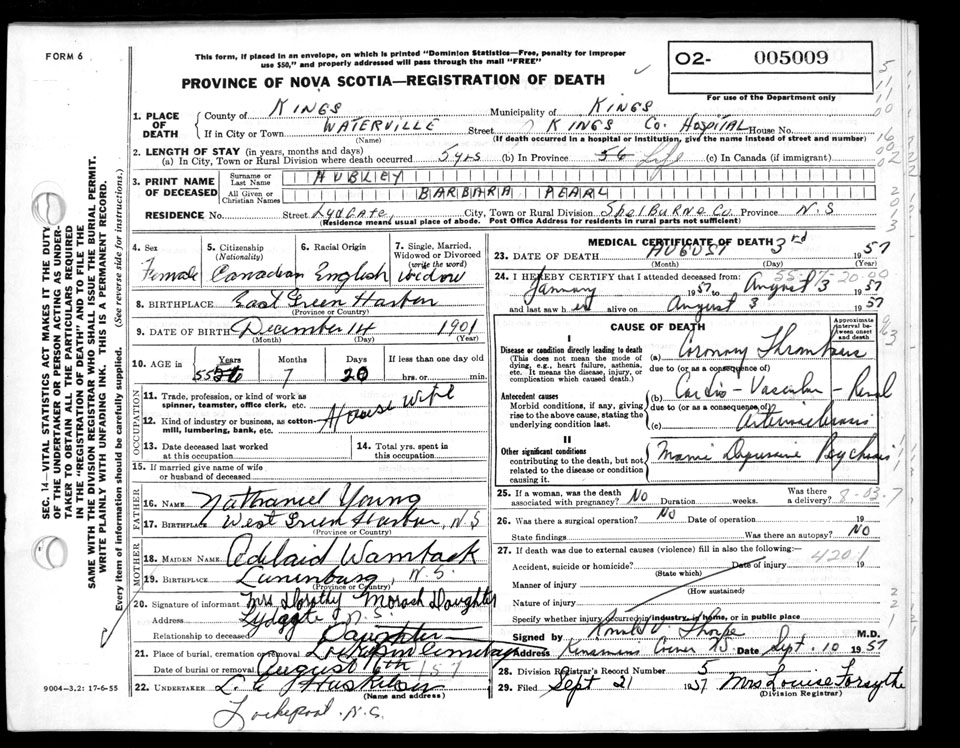 FORM 6
This form, if placed in an envelope, on which is printed "Dominion Statistics—Free, penalty for improper
use $50," and properly addressed will pass through the mail "FREE"
PROVINCE OF NOVA SCOTIA—REGISTRATION OF DEATH
O2- 005009
For use of the Department only
1. PLACE OF DEATH
County of KINGS Municipality of KINGS
If in City or Town WATERVILLE Street KINGS Co. HOSPITAL House No.
(Name) (If death occurred in a hospital or institution, give the name instead of street and number)
2. LENGTH OF STAY (in years, months and days)
(a) In City, Town or Rural Division where death occurred 5 yrs (b) In Province 56 Life (c) In Canada (if immigrant)
3. PRINT NAME OF DECEASED
Surname or Last Name HUBLEY
All Given or Christian Names BARBARA PEARL
RESIDENCE No. Street Lydgate, City, Town or Rural Division Shelburne Co. Province N.S
(Residence means usual place of abode. Post Office Address for residents in rural parts not sufficient)
4. Sex Female
5. Citizenship (Nationality) Canadian
6. Racial Origin English
7. Single, Married, Widowed or Divorced (write the word) Widow
8. BIRTHPLACE East Green Harbor
(Province or Country)
9. DATE OF BIRTH December 14 1901
(Month) (Day) (Year)
10. AGE in Years 55 56 Months 7 Days 20 If less than one day old
hrs. or min.
OCCUPATION
11. Trade, profession, or kind of work as
spinner, teamster, office clerk, etc. House Wife
12. Kind of industry or business, as cotton-
mill, lumbering, bank, etc.
13. Date deceased last worked
at this occupation
14. Total yrs. spent in
this occupation
15. If married give name of wife
or husband of deceased
FATHER
16. NAME Nathaniel Young
17. BIRTHPLACE West Green Harbor, N.S
(Province or Country)
MOTHER
18. MAIDEN NAME Adelaid Wamback
19. BIRTHPLACE Lunenburg, N.S.
(Province or Country)
20. Signature of informant Mrs Dorothy Morash Daughter
Address Lydgate N.S
Relationship to deceased Daughter
21. Place of burial, cremation or removal Lockeport Cemetery
Date of burial or removal August 6th 1957
22. UNDERTAKER L. A Huskilson
(Name and address)
Lockeport N.S.
9004—3.2: 17-6-55
SEC. 14—VITAL STATISTICS ACT MAKES IT THE DUTY
OF THE UNDERTAKER OR PERSON ACTING AS UNDER-
TAKER TO OBTAIN ALL THE PARTICULARS REQUIRED
IN THE "REGISTRATION OF DEATH" AND TO FILE THE
SAME WITH THE DIVISION REGISTRAR WHO SHALL ISSUE THE BURIAL PERMIT.
WRITE PLAINLY WITH UNFADING INK. THIS IS A PERMANENT RECORD.
Every item of information should be carefully supplied. (See reverse side for instructions.)
MEDICAL CERTIFICATE OF DEATH
23. DATE OF DEATH AUGUST 3rd 1957
(Month) (Day) (Year)
24. I HEREBY CERTIFY that I attended deceased from:
January 1957 to August 3 1957
and last saw h er alive on August 3 1957
CAUSE OF DEATH
Approximate interval between onset and death
I
Disease or condition directly leading to death
(This does not mean the mode of
dying, e.g., heart failure, asthenia,
etc. It means the disease, injury, or
complication which caused death.)
(a) Coronary Thrombosis
due to (or as a consequence of)
Antecedent causes
Morbid conditions, if any, giving
rise to the above cause, stating the
underlying condition last.
(b) Cardio-Vascular-Renal
due to (or as a consequence of)
(c) Arteriosclerosis
II
Other significant conditions
contributing to the death, but not
related to the disease or condition
causing it.
Manic Depressive Psychosis
25. If a woman, was the death
associated with pregnancy? NO Duration weeks. Was there
a delivery?
26. Was there a surgical operation? NO Date of operation 19
State findings Was there an autopsy? NO
27. If death was due to external causes (violence) fill in also the following:—
Accident, suicide or homicide? Date of injury 19
(State which)
4201
Manner of injury
(How sustained)
Nature of injury
Specify whether injury occurred in industry, in home, or in public place
Signed by M.D.
Address Date Sept. 10 1957
28. Division Registrar's Record Number 5
29. Filed Sept 21 1957 Mrs Louise Forsythe
(Division Registrar)